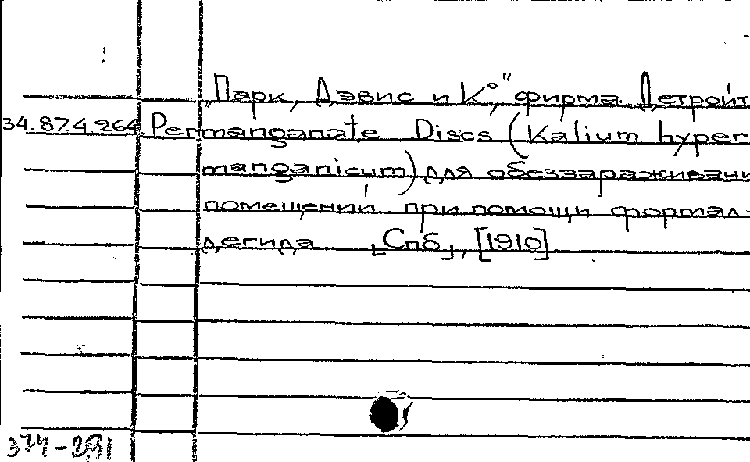 „Парк, Дэвис и К°", фирма Детройт
34.874.264 Permanganate Discs (Kalium hyper-
manganicum) для обеззараживани
помещений при помощи формал-
дегида [Спб], [1910]
374-291